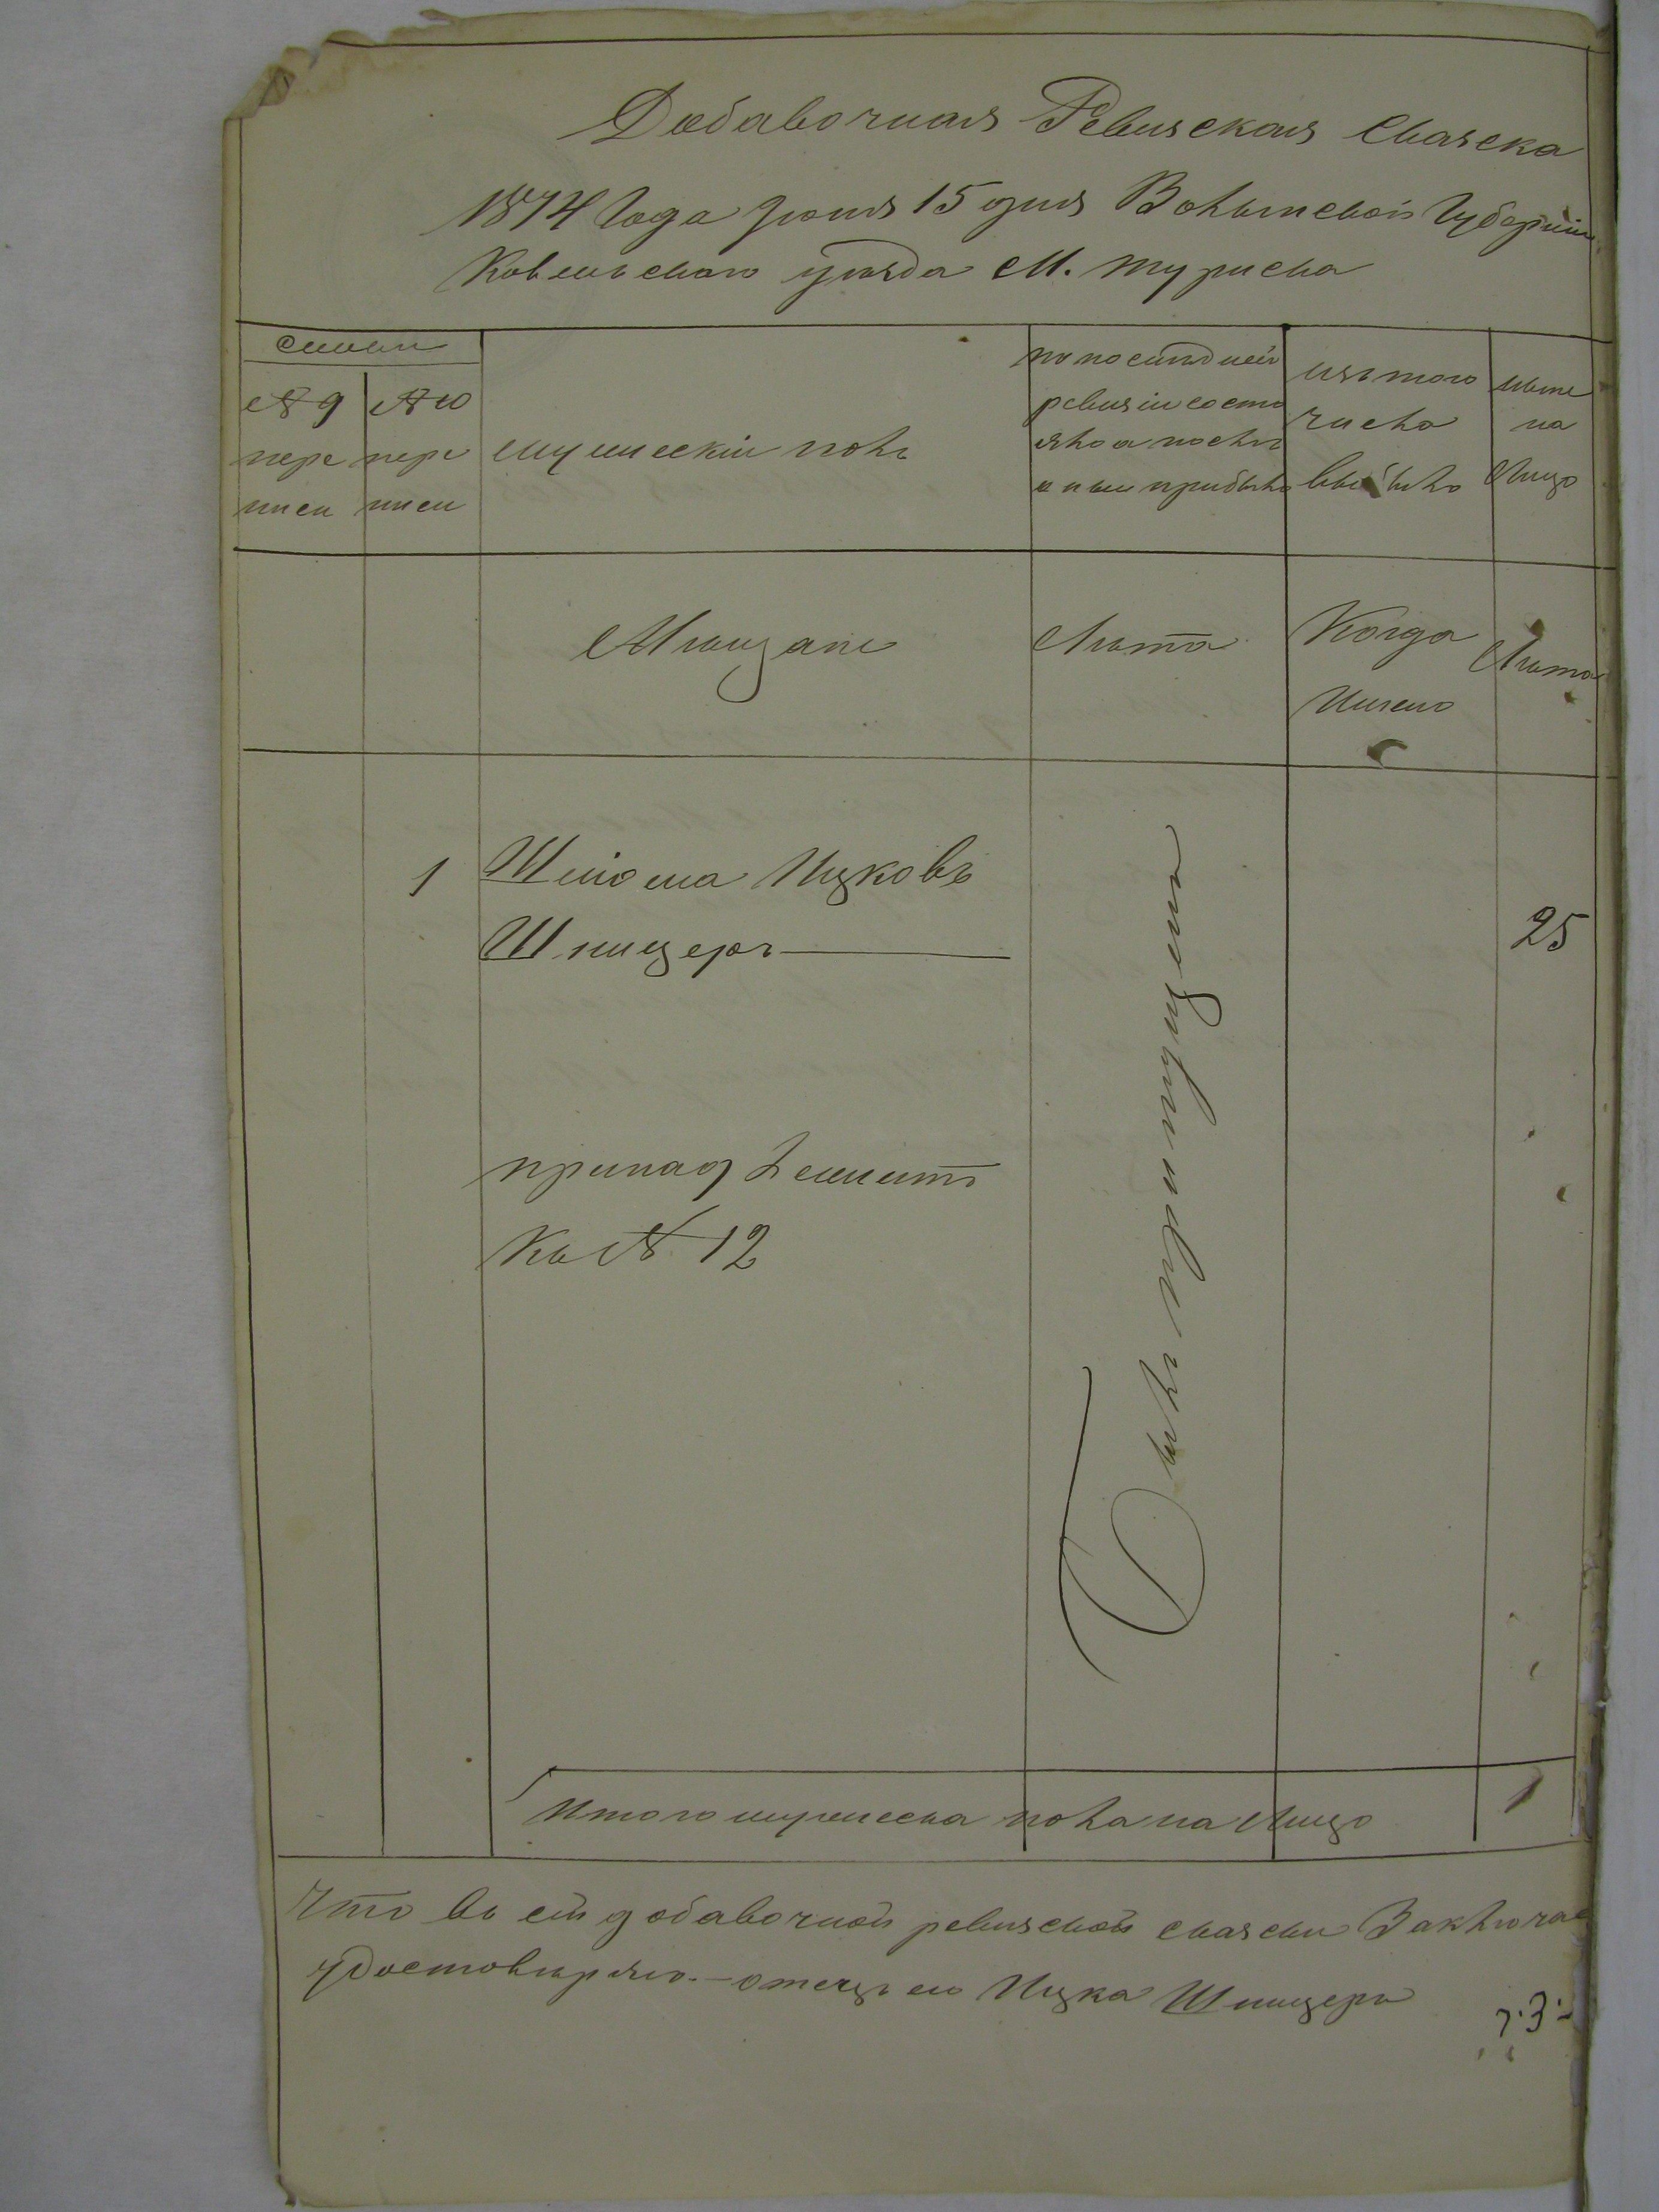 Добавочная Ревизская сказска
1874 Года Іюня 15 дня Волынской Губерніи
Ковельскаго уѣзда М. Туриска
Семьи
№ 9 пере писи
№ 10 пере писи
мужескій полъ
по послѣдней
ревизіи состо
яло и послѣ
оный прибыло
изъ того
числа
выбыло
ныне
на
Лицо
Мѣщане
Лѣта
Когда
Именно
Лѣта
1 Шлiома Ицковъ
Шницеръ 25
принадлежитъ
Къ № 12
Былъ пропущенъ
Итого мужеска пола на Лицо 1
Что въ сей добавочной ревизской сказски Заключае
удостовѣряю. — отецъ его Ицка Шницеръ